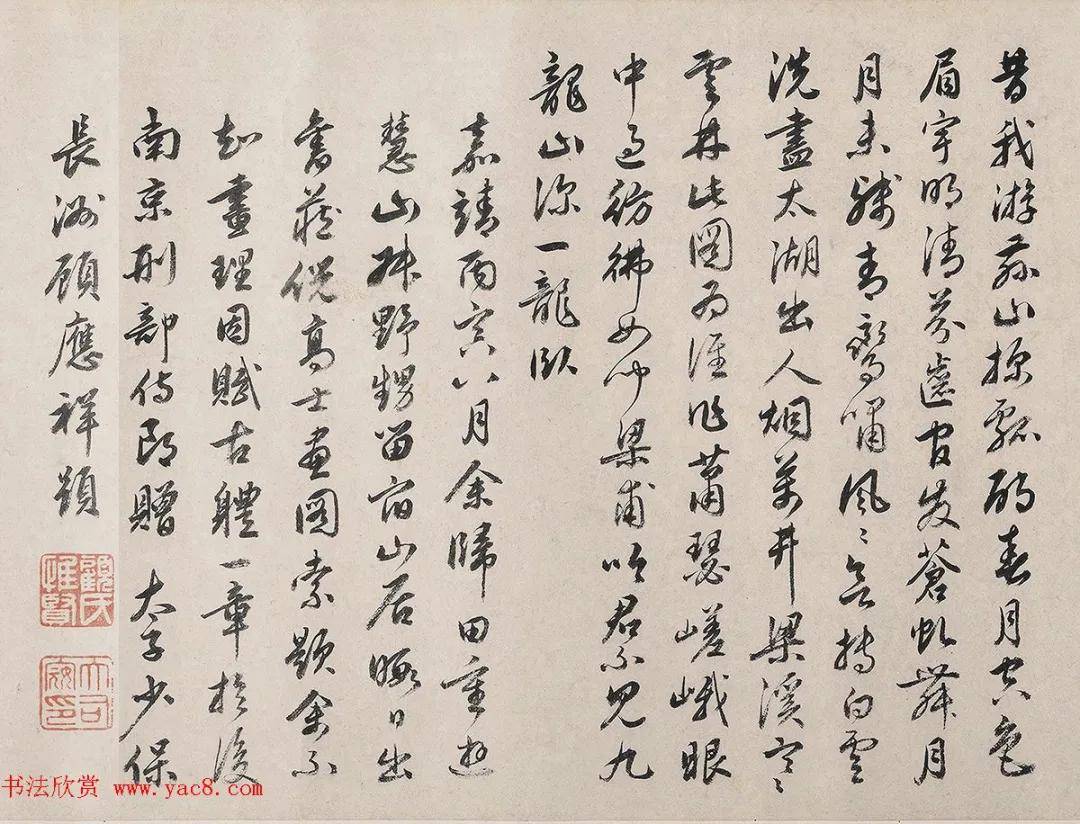 昔我游茲山探瓢酌春月空色
眉宇明清芬齒間發蒼虬舞月
月未殘青鸞嘯風〻持白雲
洗盡太湖出人烟萬井梁溪寒〻
雲林此圖為誰作蕭瑟嵯峨眼
中過彷彿如聞梁甫吟君不見九
龍山深一龍臥
嘉靖丙寅八月余歸田重遊
慧山野甥留宿山居暇日出
舊藏倪高士畫圖索題余不
知畫理因賦古體一章於後
南京刑部侍郎贈太子少保
長洲顧應祥題
顧氏惟賢
大司寇印
书法欣赏 www.yac8.com